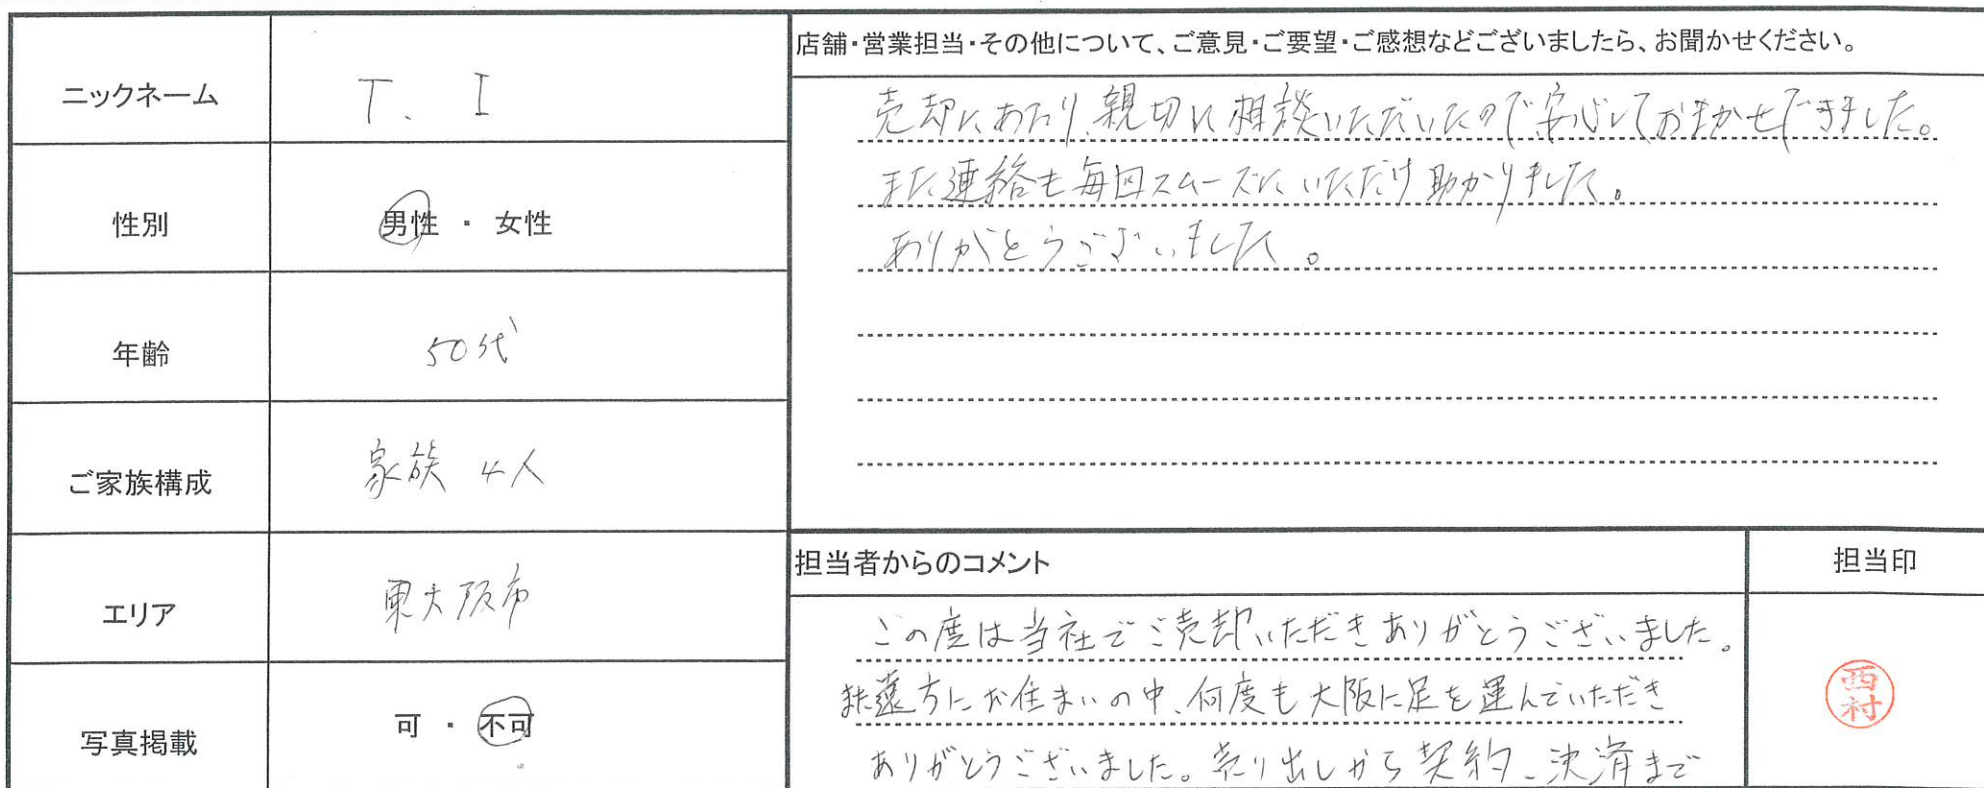 ニックネーム
T. I
性別
男性 ・ 女性
年齢
50代
ご家族構成
家族 4人
エリア
東大阪市
写真掲載
可 ・ 不可
店舗・営業担当・その他について、ご意見・ご要望・ご感想などございましたら、お聞かせください。
売却にあたり、親切に相談いただいたので安心しておまかせできました。
また連絡も毎回スムーズにいただけ助かりました。
ありがとうございました。
担当者からのコメント
この度は当社でご売却いただきありがとうございました。
また遠方にお住まいの中、何度も大阪に足を運んでいただき
ありがとうございました。売り出しから契約、決済まで
担当印
西村